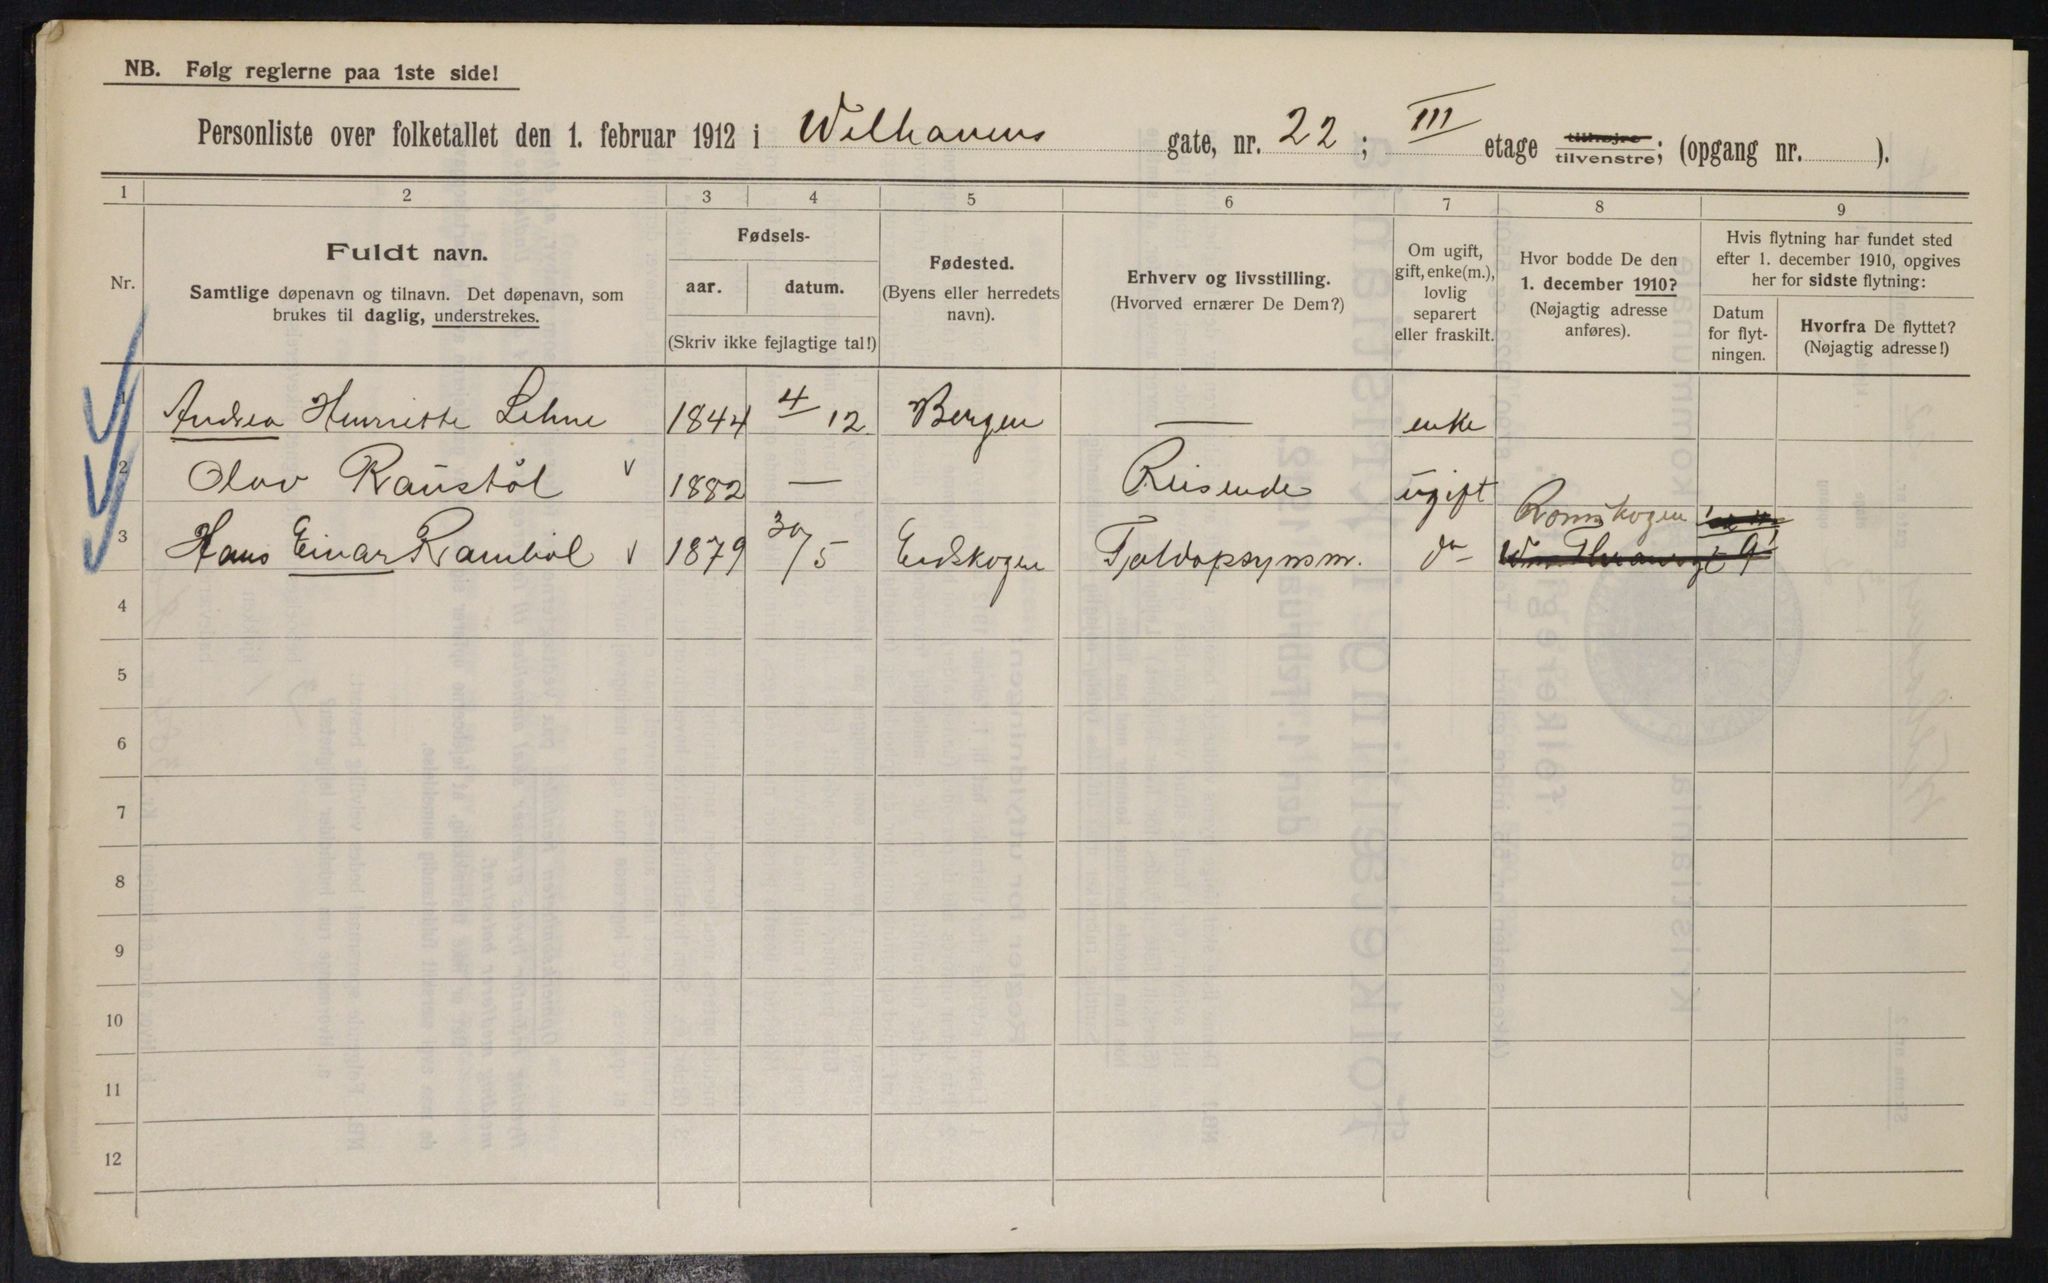 NB. Følg reglerne paa 1ste side!
Personliste over folketallet den 1. februar 1912 i Welhavens gate, nr. 22; III etage tilhøjre tilvenstre; (opgang nr. ).
1 2 3 4 5 6 7 8 9
Nr.
Fuldt navn.
Samtlige døpenavn og tilnavn. Det døpenavn, som
brukes til daglig, understrekes.
Fødsels-
aar. datum.
(Skriv ikke fejlagtige tal!)
Fødested.
(Byens eller herredets
navn).
Erhverv og livsstilling.
(Hvorved ernærer De Dem?)
Om ugift,
gift, enke(m.),
lovlig
separert
eller fraskilt.
Hvor bodde De den
1. december 1910?
(Nøjagtig adresse
anføres).
Hvis flytning har fundet sted
efter 1. december 1910, opgives
her for sidste flytning:
Datum
for flyt-
ningen.
Hvorfra De flyttet?
(Nøjagtig adresse!)
1 Andrea Henriette Lehne 1844 4/12 Bergen — enke
2 Olav Raustøl v 1882 — Reisende ugift
3 Hans Einar Rambøl v 1879 30/5 Eidskogen do Romskogen
4
5
6
7
8
9
10
11
12